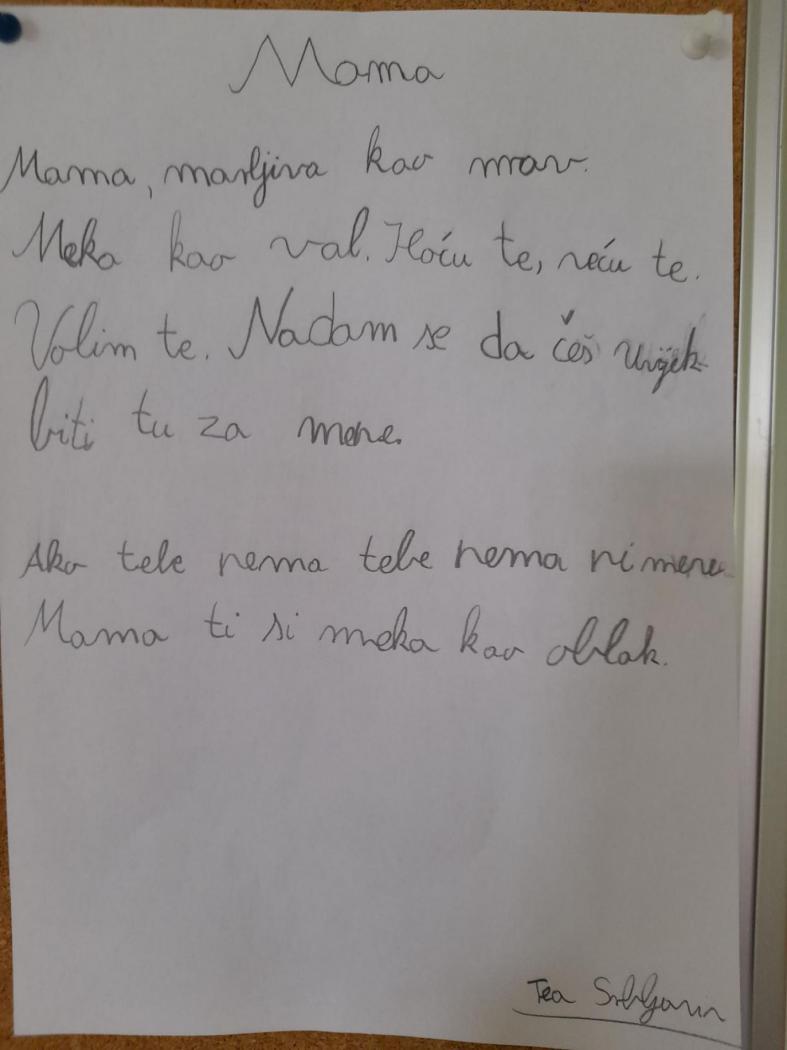 Mama
Mama, marljiva kao mrav.
Meka kao val. Hoću te, neću te.
Volim te. Nadam se da ćeš uvijek
biti tu za mene.
Ako tebe nema tebe nema ni mene
Mama ti si meka kao oblak.
Tea